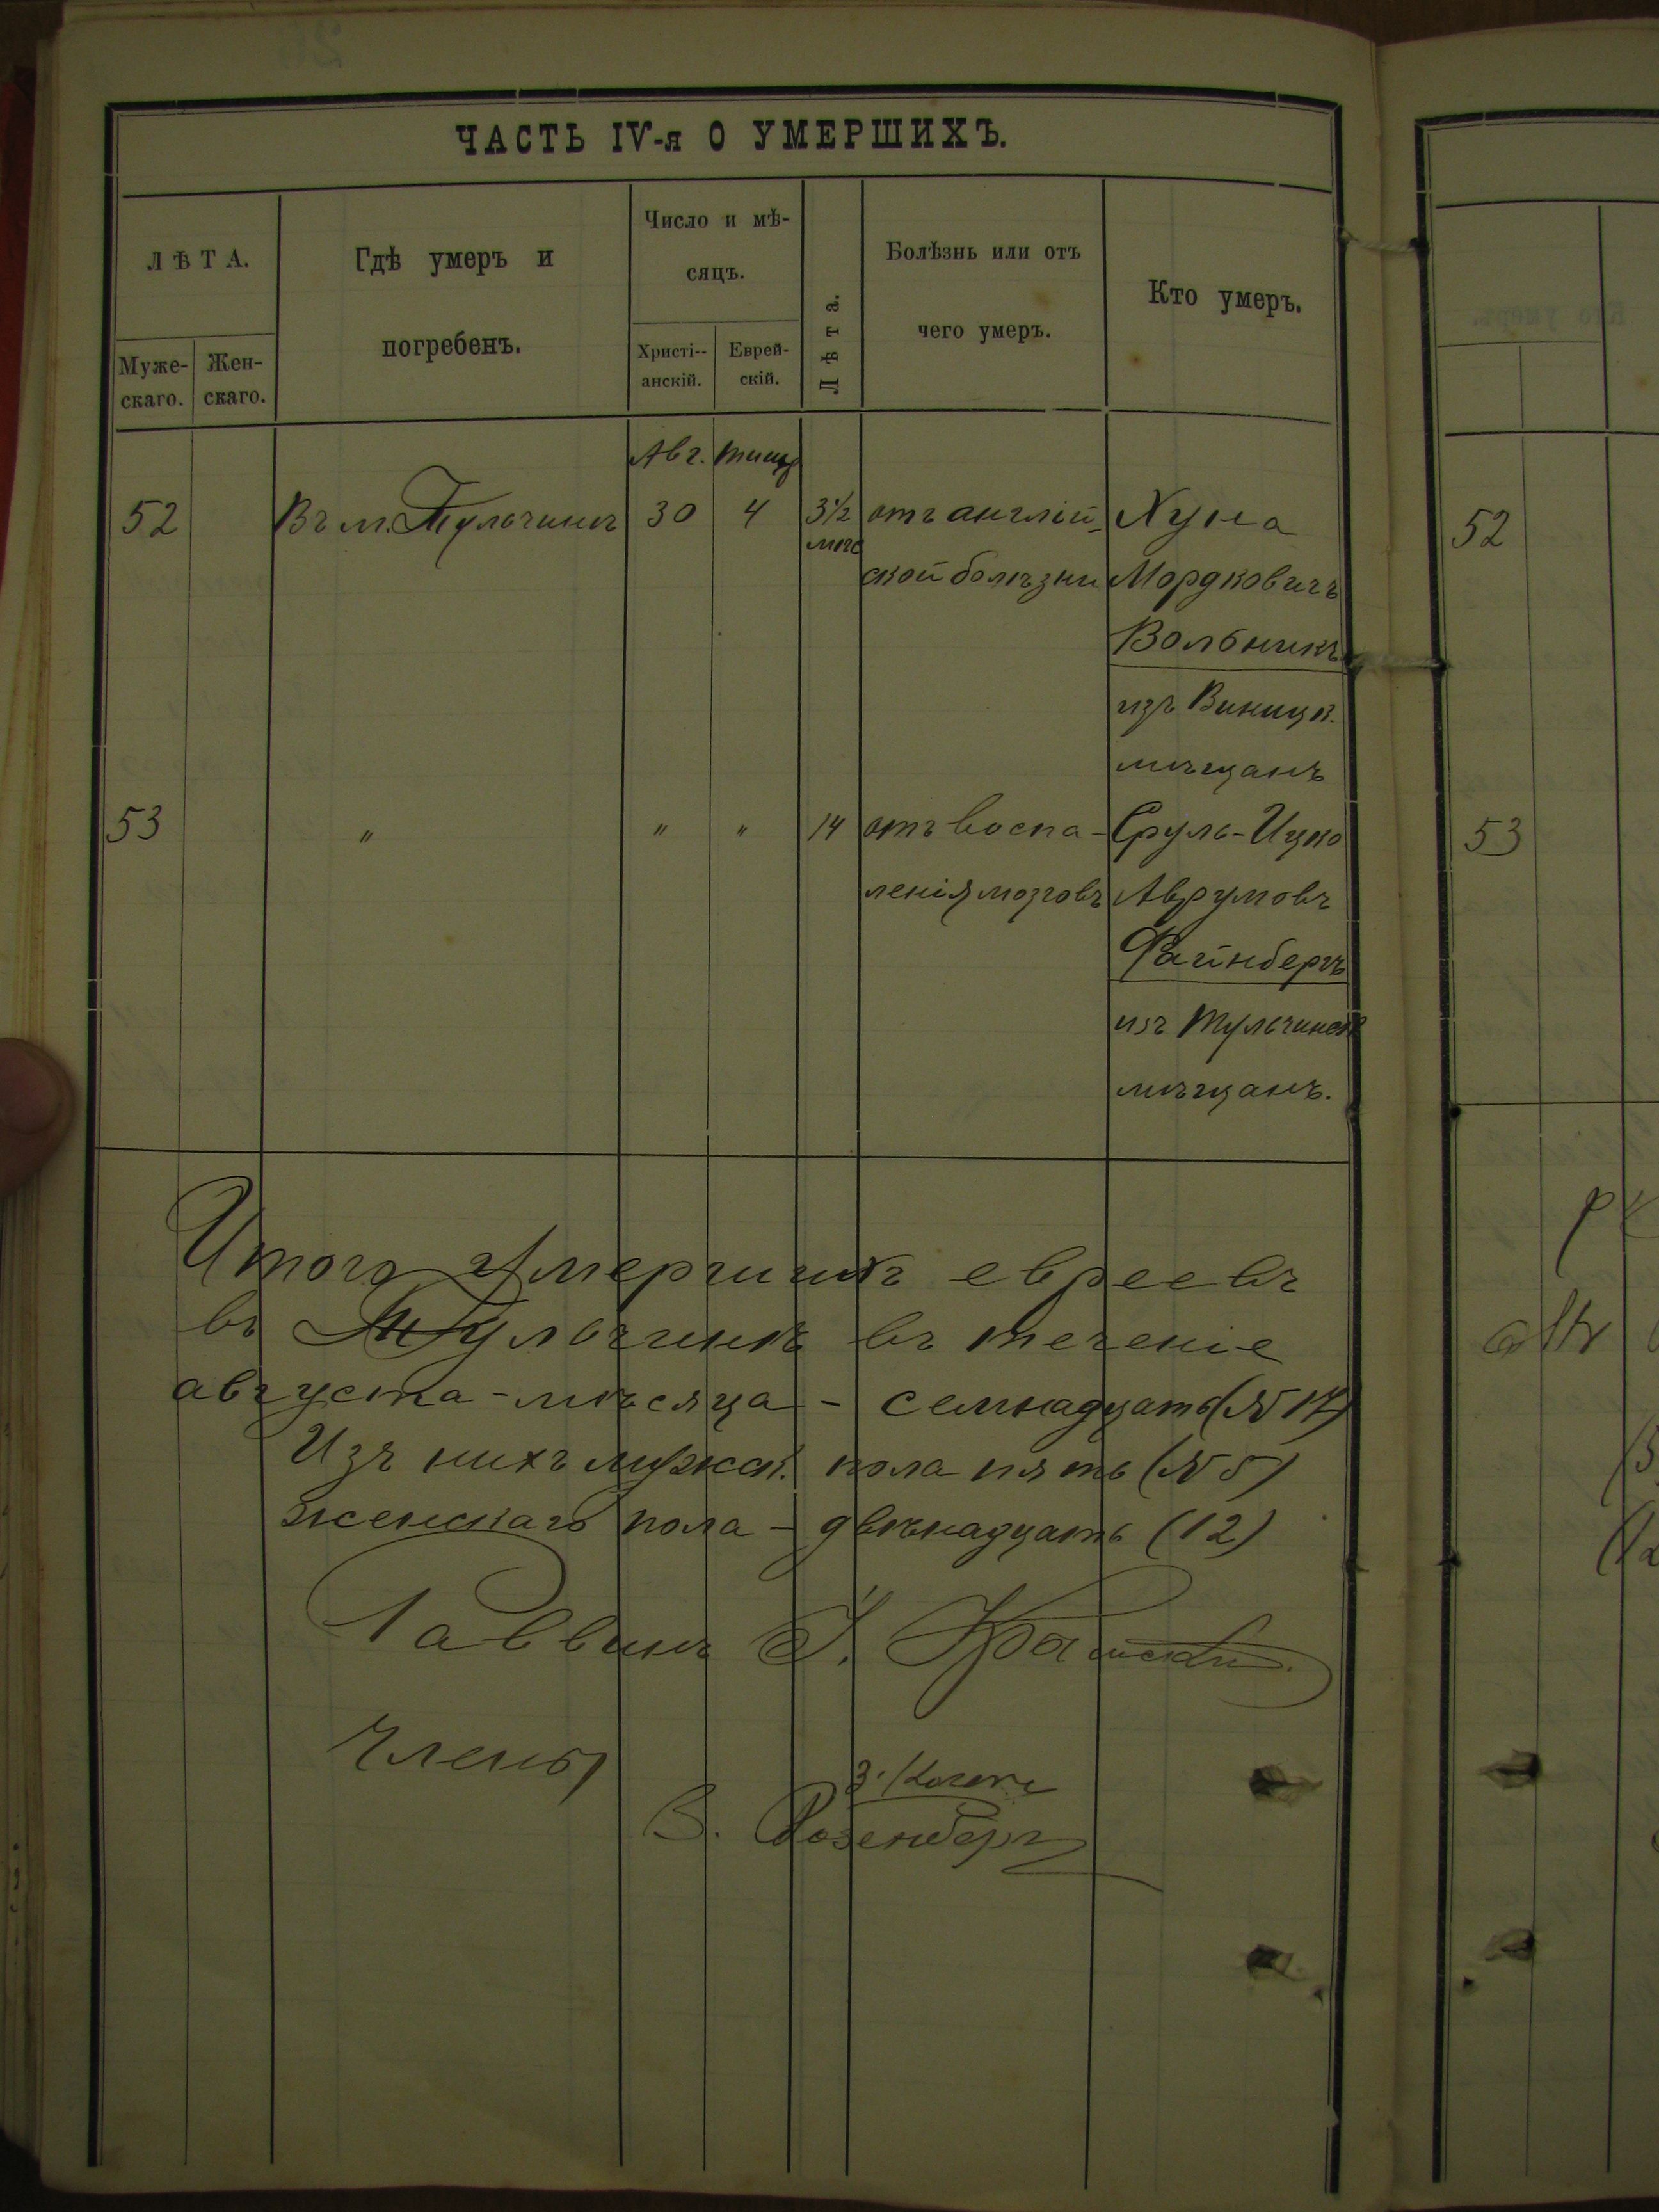 ЧАСТЬ IV-я О УМЕРШИХЪ.
ЛѢТА.
Муже-
скаго.
Жен-
скаго.
Гдѣ умеръ и
погребенъ.
Число и мѣ-
сяцъ.
Христі--
анскій.
Еврей-
скій.
Лѣта.
Болѣзнь или отъ
чего умеръ.
Кто умеръ.
Авг. тиш
52 Въ м. Тульчинѣ 30 4 3½ отъ англій- Хуна
ской болѣзни Мордковичъ
Вольникъ
изъ Виницк.
мѣщанъ
53 " " " 14 отъ воспа- Сруль-Ицко
ленія мозговъ Аврумовъ
Файнбергъ
изъ Тульчинск
мѣщанъ.
Итого умершихъ евреевъ
въ Тульчинѣ въ теченіе
августа-мѣсяца - семнадцать (№ 17)
Изъ нихъ мужск. пола пять (№ 5)
женскаго пола - двѣнадцать (12)
Раввинъ
Члены
З. Когенъ
В. Розенберг
52
53